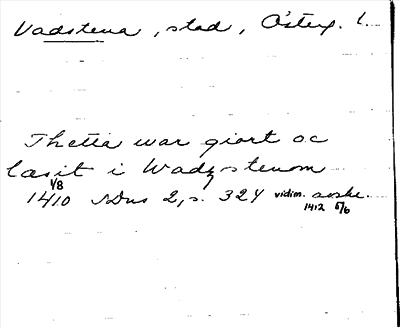 Vadstena, stad, Österg. l.
Thetta war giort oc
läsit i Wadzstenom
1/8
1410 SDns 2, s. 324 vidim. avskr.
1412 5/6